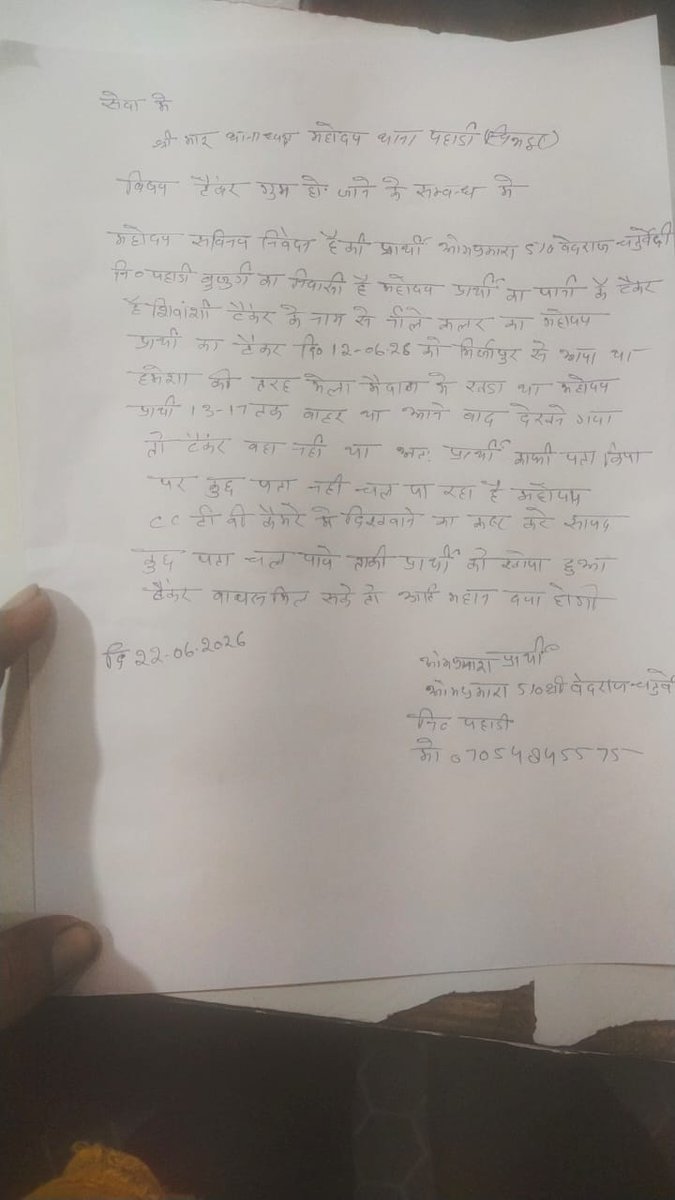 सेवा मे
श्री मान थानाध्यक्ष महोदय थाना पहाडी (चित्रकूट)
विषय टैंकर गुम हो जाने के सम्बन्ध मे
महोदय सविनय निवेदन है की प्रार्थी ओमप्रकाश S/o वेदराज चतुर्वेदी
नि० पहाडी बुजुर्ग का निवासी है महोदय प्रार्थी का पानी के टैंकर
है शिवांशी टैंकर के नाम से नीले कलर का महोदय
प्रार्थी का टैंकर दि० 12-06-26 को मिर्जापुर से आया था
हमेशा की तरह मेला मैदान मे खडा था महोदय
प्रार्थी 13-17 तक बाहर था आने बाद देखने गया
तो टैंकर वहा नही था अतः प्रार्थी काफी पता किया
पर कुछ पता नही चल पा रहा है महोदय
CC टी वी कैमरे मे दिखवाने का कष्ट करे शायद
कुछ पता चल पाये ताकी प्रार्थी को खोया हुआ
टैंकर वापस मिल सके तो अति महान दया होगी
दि 22-06-2026
ओमप्रकाश प्रार्थी
ओमप्रकाश S/o श्री वेदराज चतुर्वे
नि० पहाडी
मो ०7054845575